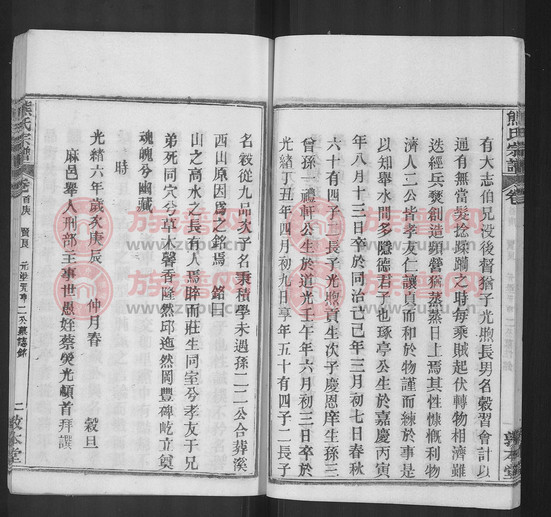 熊氏宗譜
卷
有大志伯兄没後督猶子光煦長男名穀習會計以
通有無當髮捻蹂躪之時每乘賊起伏轉物相濟雖
迭經兵燹創造頭營猶蒸蒸日上焉其性慷慨利物
濟人二公皆孝友仁讓貞而和於物謹而練於事是
以知舉水間多隱德君子也琢亭公生於嘉慶丙寅
年八月十三日卒於同治己巳年三月初七日春秋
六十有四子二長子光煦貢生次子慶恩庠生孫三
曾孫一禮軒公生於道光壬午年六月初三日卒於
光緒丁丑年四月初九日享年五十有四子二長子
敦本堂
名穀從九品次子名秉積學未遇孫二二公合葬溪
西山原因為之銘焉 銘曰
山之高水之長有人焉睟而莊生同室兮孝友于兄
弟死同穴兮草木馨香隆然邱迤然岡豐碑屹立奠
魂魄兮幽藏
時
光緒六年歲次庚辰 仲月春 穀旦
麻邑舉人刑部主事世愚姪蔡燮光頓首拜譔
熊氏宗譜
卷首庚 賢良
二公墓誌銘
二 敦本堂
族譜網
www.zupu.cn